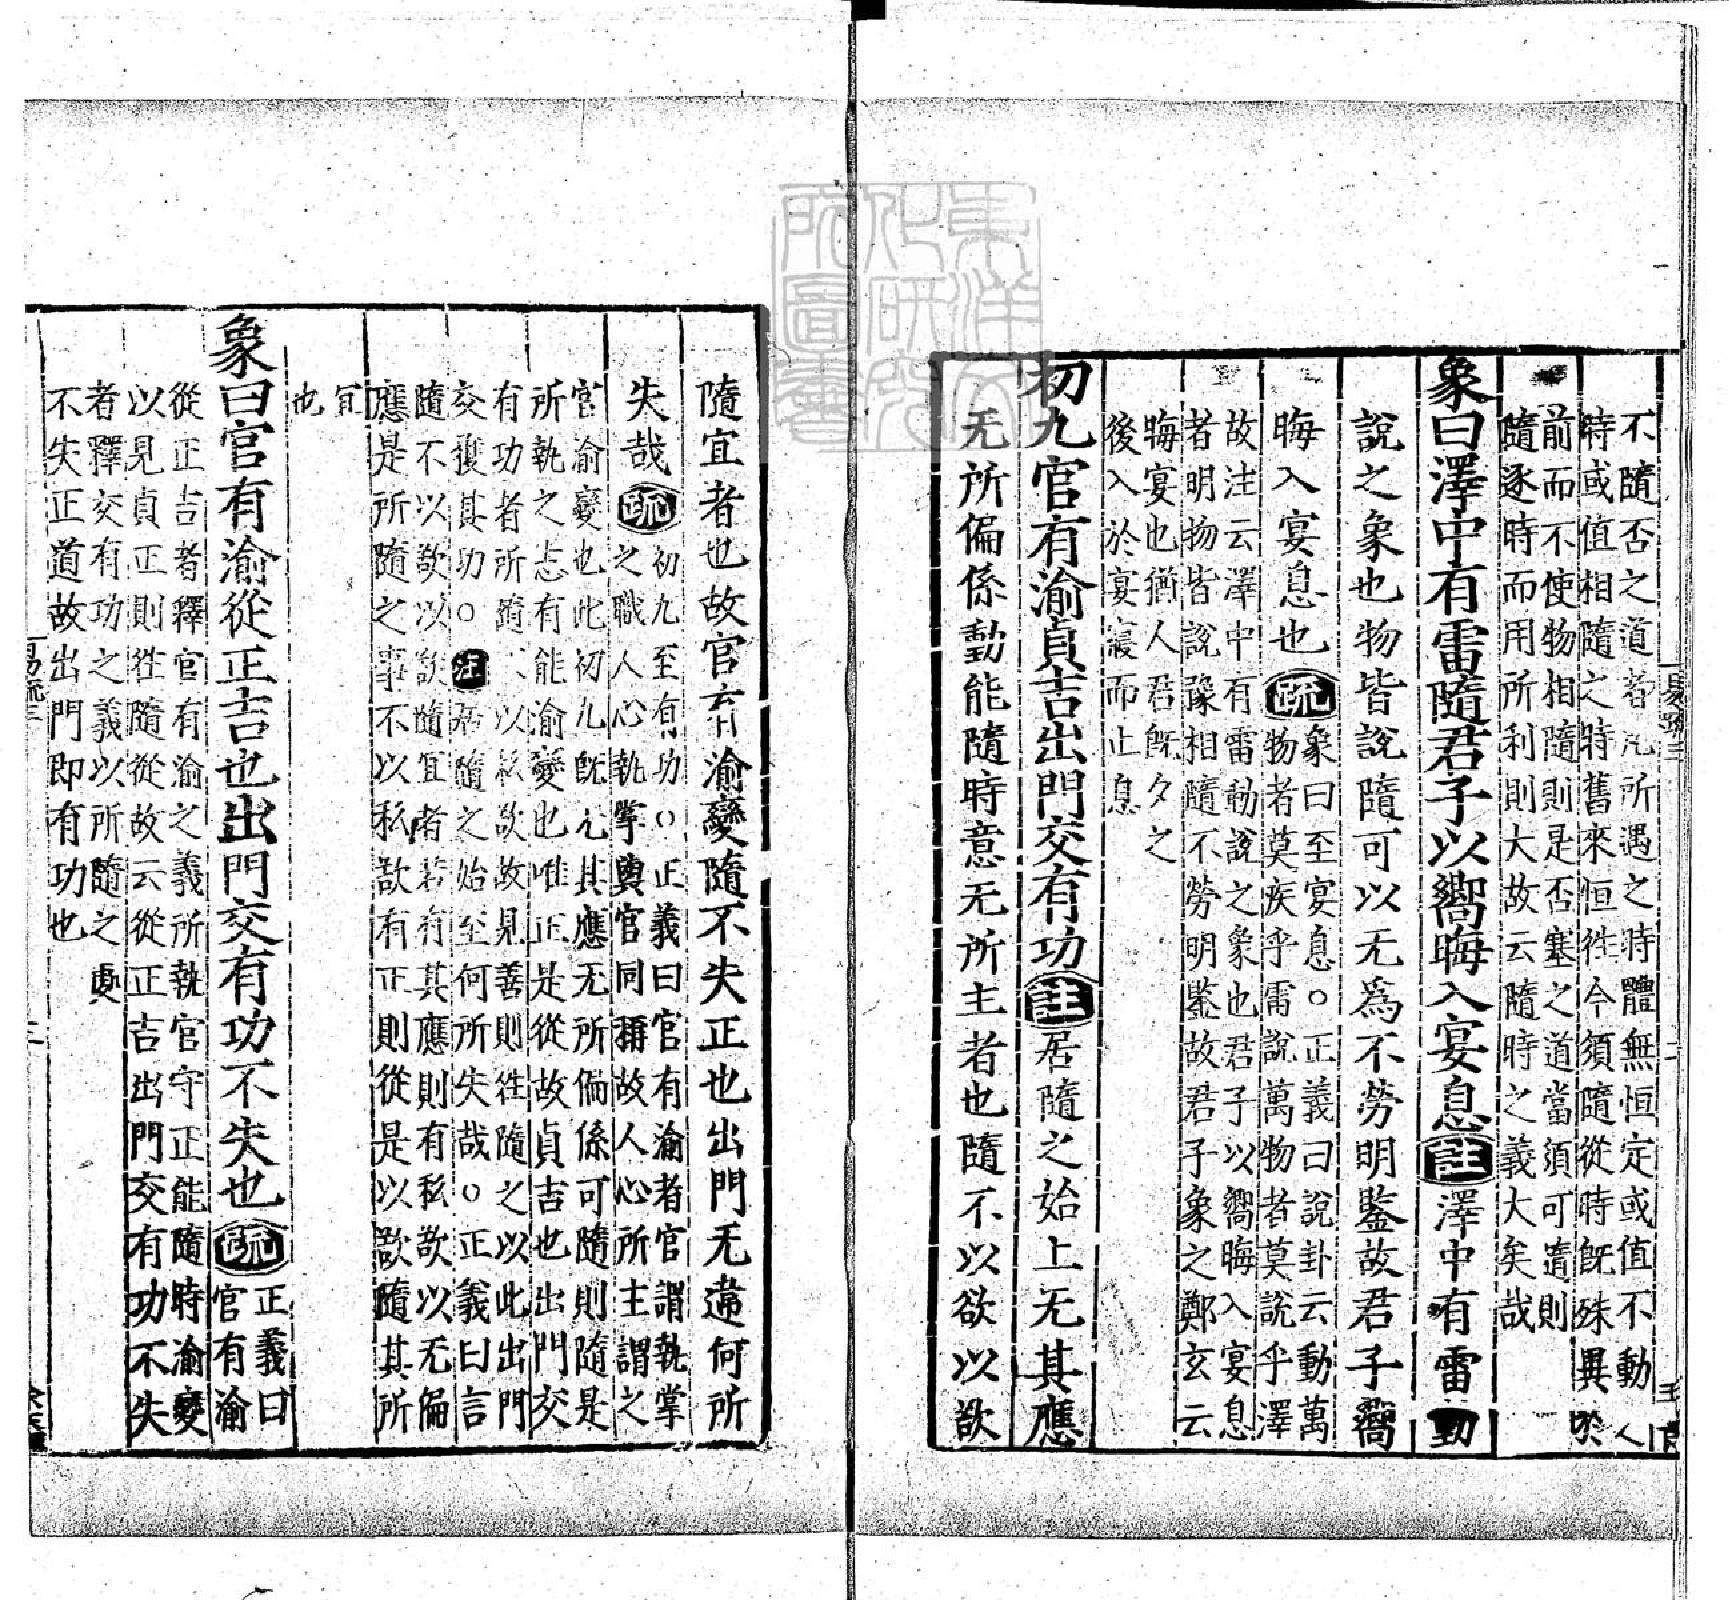 不隨否之道者凡所遇之時體無恒定或值不動人
時或值相隨之時舊來恒往今須隨從時既殊異於
前而不使物相隨則是否塞之道當須可隨則
隨逐時而用所利則大故云隨時之義大矣哉
象曰澤中有雷隨君子以嚮晦入宴息註澤中有雷動
說之象也物皆說隨可以无為不勞明鍳故君子嚮
晦入宴息也疏象曰至宴息○正義曰說卦云動萬
物者莫疾乎雷說萬物者莫說乎澤
故注云澤中有雷動說之象也君子以嚮晦入宴息
者明物皆說豫相隨不勞明鍳故君子象之鄭玄云
晦宴也猶人君既夕之
後入於宴寢而止息
初九官有渝貞吉出門交有功註居隨之始上无其應
无所偏係動能隨時意无所主者也隨不以欲以欲
隨宜者也故官有渝變隨不失正也出門无違何所
失哉疏初九至有功○正義曰官有渝者官謂執掌
之職人心執掌與官同稱故人心所主謂之
官渝變也此初九既无其應无所偏係可隨則隨是
所執之志有能渝變也唯正是從故貞吉也出門交
有功者所隨不以私欲故見善則往隨之以此出門
交獲其功○注居隨之始至何所失哉○正義曰言
隨不以欲以欲隨宜者若有其應則有私欲以无偏
應是所隨之事不以私欲有正則從是以欲隨其所
宜
也
象曰官有渝從正吉也出門交有功不失也疏正義曰
官有渝
從正吉者釋官有渝之義所執官守正能隨時渝變
以見貞正則往隨從故云從正吉出門交有功不失
者釋交有功之義以所隨之處
不失正道故出門即有功也
易疏三